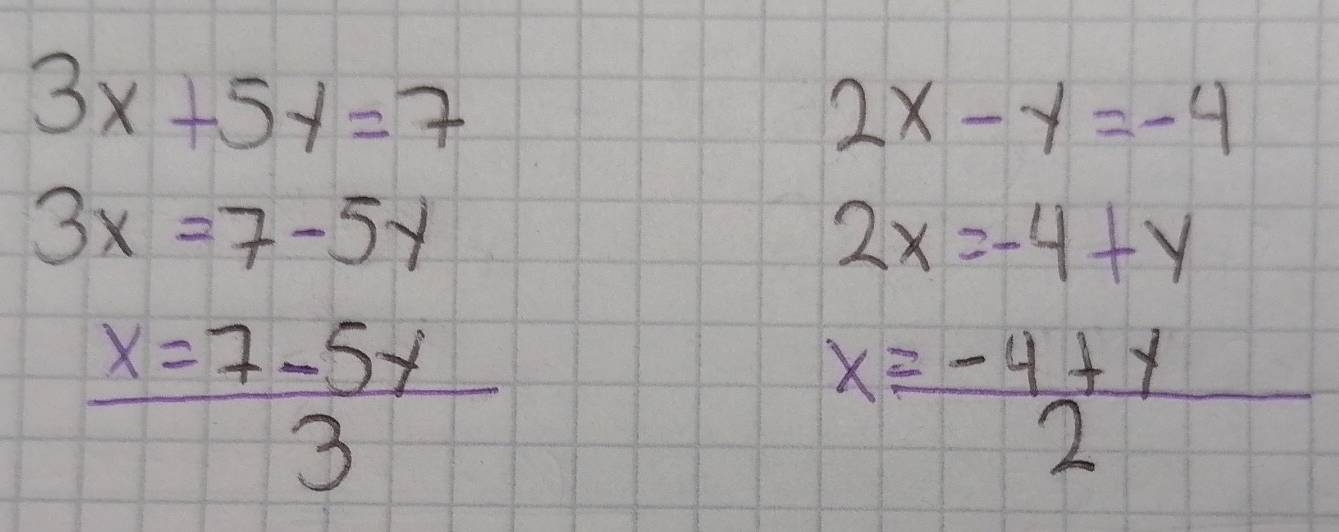 3x + 5y = 7
3x = 7 - 5y
x = 7 - 5y
3
2x - y = -4
2x = -4 + y
x = -4 + y
2